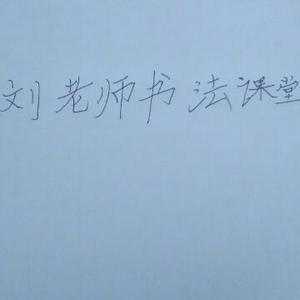 刘老师书法课堂